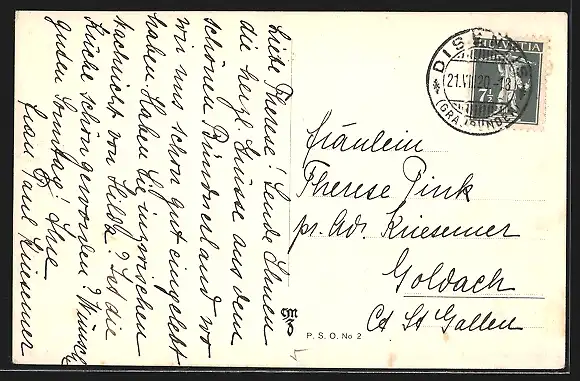 Liebe Therese! Sende Ihnen
die herzl. Grüsse aus dem
schönen Bündnerland wo
wir uns schon gut eingelebt
haben. Haben Sie inzwischen
Nachricht von Hilda? Ist die
Küche schön geworden? Wünsche
guten Sonntag! Ihre
Frau Paul Kriesemer
DISENTIS
21.VII.20-18
(GRAUBÜNDEN)
HELVETIA
7½
Fräulein
Therese Pink
pr. Adr. Kriesemer
Goldach
Ct St Gallen
P. S. O. No 2